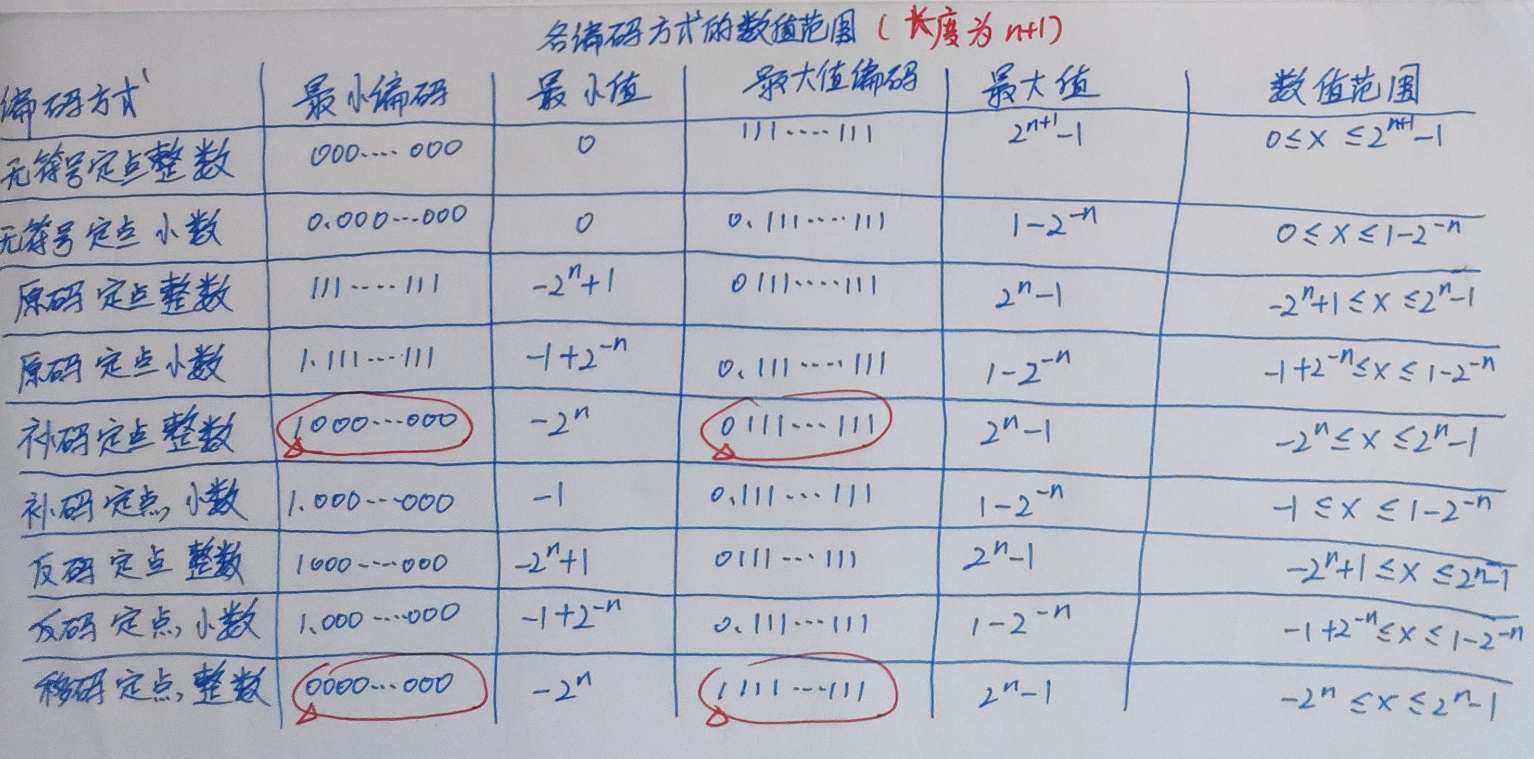 各编码方式的数值范围(长度为n+1)
编码方式 最小编码 最小值 最大值编码 最大值 数值范围
无符号定点整数 000....000 0 111....111 2^{n+1}-1 0≤x≤2^{n+1}-1
无符号定点小数 0.000...000 0 0.111....111 1-2^{-n} 0≤x≤1-2^{-n}
原码定点整数 111....111 -2^n+1 0111....111 2^n-1 -2^n+1≤x≤2^n-1
原码定点小数 1.111...111 -1+2^{-n} 0.111....111 1-2^{-n} -1+2^{-n}≤x≤1-2^{-n}
补码定点整数 1000...000 -2^n 0111...111 2^n-1 -2^n≤x≤2^n-1
补码定点小数 1.000...000 -1 0.111...111 1-2^{-n} -1≤x≤1-2^{-n}
反码定点整数 1000....000 -2^n+1 0111...111 2^n-1 -2^n+1≤x≤2^n-1
反码定点小数 1.000....000 -1+2^{-n} 0.111...111 1-2^{-n} -1+2^{-n}≤x≤1-2^{-n}
移码定点整数 0000...000 -2^n 1111...111 2^n-1 -2^n≤x≤2^n-1